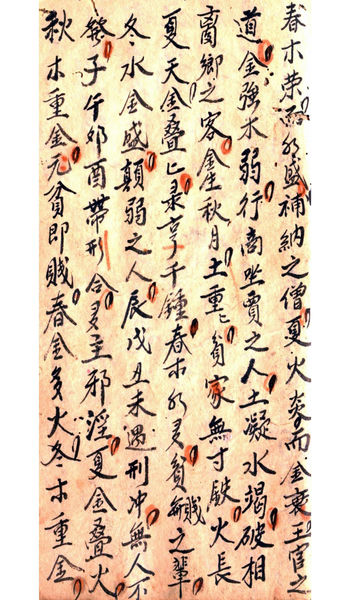 春木荣而水盛補納之僧夏火炎而金衰王官之
道金強水弱行商坐賈之人土凝水竭破相
离鄉之客金生秋月土重匕貧家無寸鉄火長
夏天金叠匕录享千鍾春木水多貧賤之輩
冬水金盛顛弱之人辰戊丑未遇刑冲無人不
發子午卯酉帶形合多主邪淫夏金叠火
秋木重金元貧即賤春金多火冬木重金